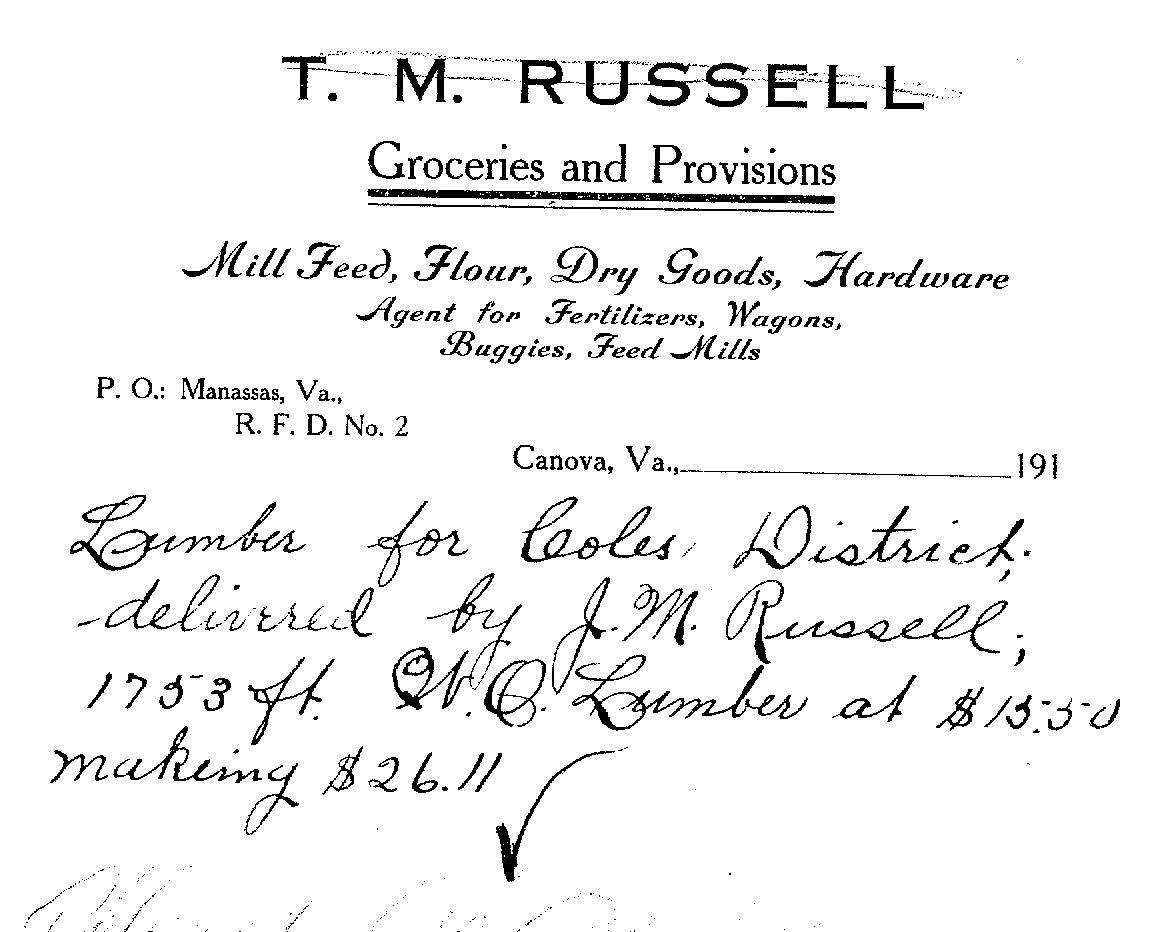 T. M. RUSSELL
Groceries and Provisions
Mill Feed, Flour, Dry Goods, Hardware
Agent for Fertilizers, Wagons,
Buggies, Feed Mills
P. O.: Manassas, Va.,
R. F. D. No. 2
Canova, Va., 191
Lumber for Coles District,
delivered by J. M. Russell,
1753 ft. W. O. Lumber at $15.50
makeing $26.11